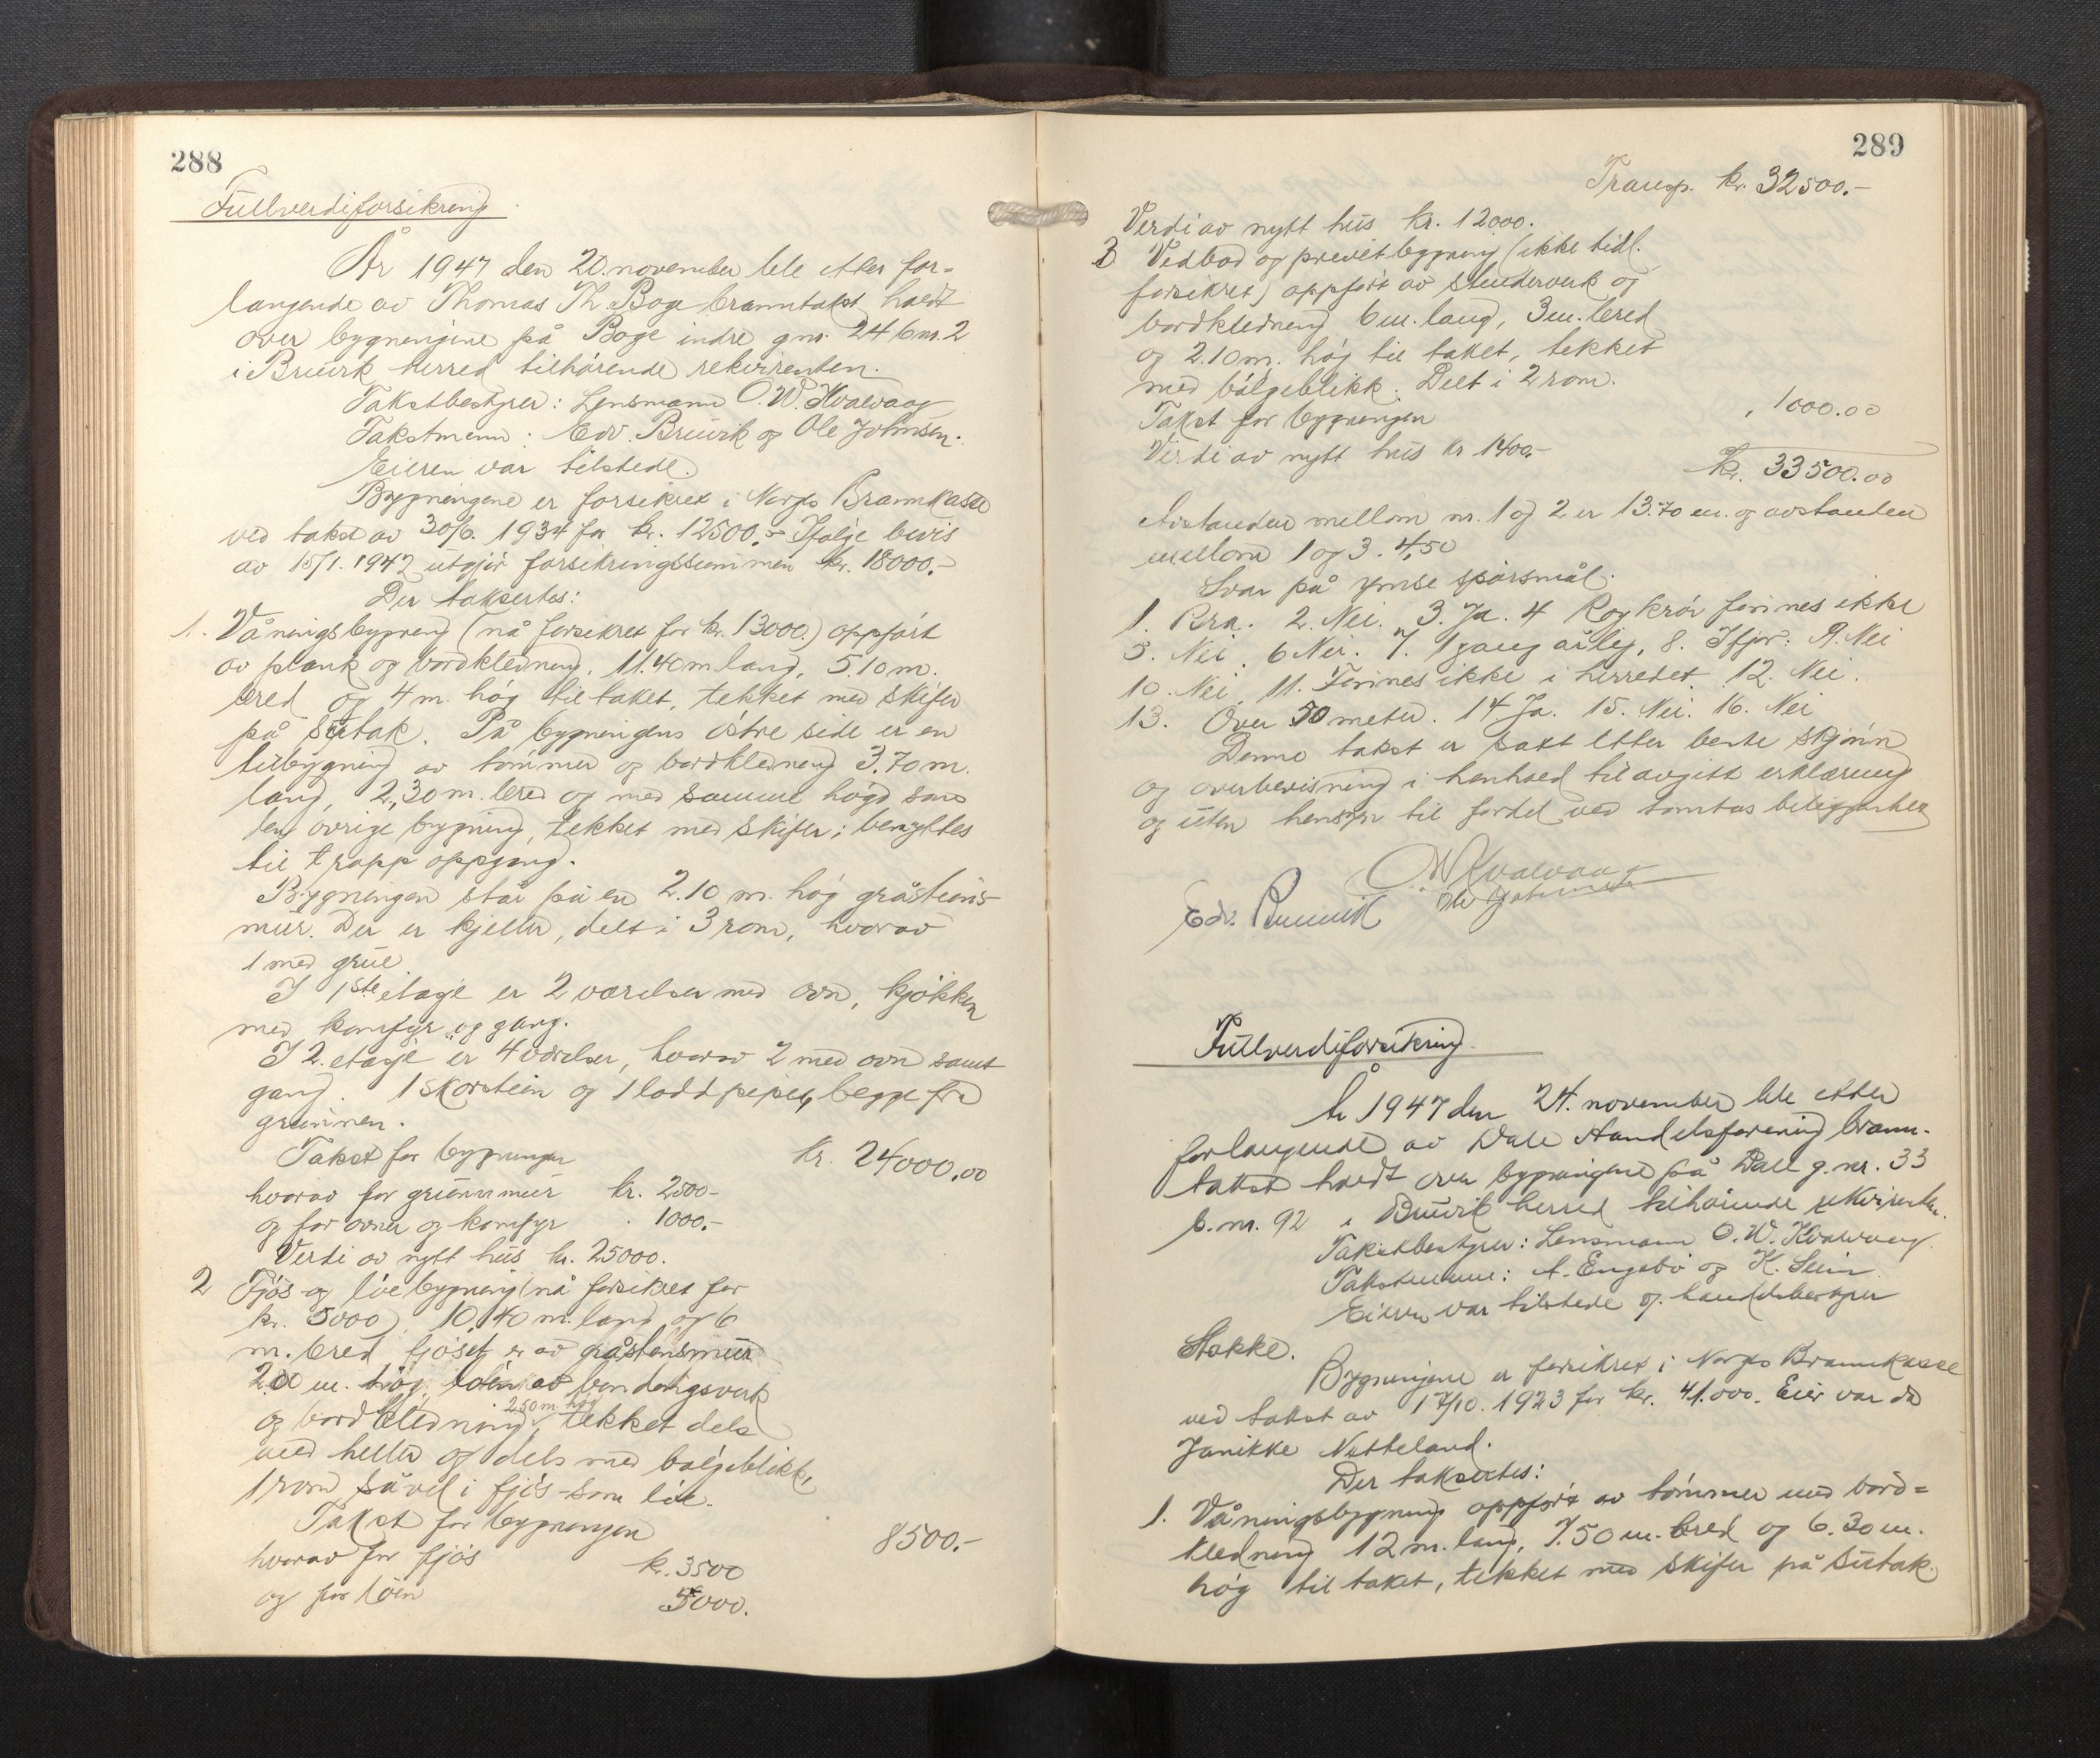 288
Fullverdiforsikring
År 1947 den 20. november ble etter for-
langende av Thomas Th. Boge branntakst holdt
over bygningene på Boge indre gnr. 24 bnr. 2
i Bruvik herred tilhørende rekvirenten.
Takstbestyrer: Lensmann O. W. Kvalvaag
Takstmenn: Edv. Bruvik og Ole Johnsen.
Eieren var tilstede.
Bygningene er forsikret i Norges Brannkasse
ved takst av 30/6. 1934 for kr. 12500.- Ifølge bevis
av 15/1. 1942 utgjør forsikringssummen kr. 18000.-
Der taksertes:
1. Våningsbygning (nå forsikret for kr. 13000.) oppført
av plank og bordkledning, 11.40 m lang, 5.10 m.
bred og 4 m. høg til taket, tekket med skifer
på sutak. På bygningens østre side er en
tilbygning av tømmer og bordkledning 3.70 m.
lang, 2,30 m. bred og med samme høgd som
den øvrige bygning, tekket med skifer; benyttes
til trapp oppgang.
Bygningen står på en 2.10 m. høg gråsteins-
mur. Der er kjeller, delt i 3 rom, hvorav
1 med grue.
I 1ste etage er 2 værelser med ovn, kjøkken
med komfyr og gang.
I 2. etasje er 4 værelser, hvorav 2 med ovn samt
gang. 1 skorstein og 1 loddpipe, begge fra
grunnen.
Takst for bygningen kr. 24000.00
hvorav for grunnmur kr. 2500-
og for ovner og komfyr " 1000.-
Verdi av nytt hus kr. 25000.
2 Fjøs og løebygning (nå forsikret for
kr. 5000), 10.40 m. lang og 6
m. bred, fjøset er av gråstensmur
2.00 m. høg, løen av bindingsverk
og bordkledning, 2.50 m høg tekket dels
med heller og dels med bølgeblikk,
1 rom såvel i fjøs som løe.
Takst for bygningen 8500.-
hvorav for fjøs kr. 3500
og for løen 5000.
289
Transp. kr. 32500.-
Verdi av nytt hus kr. 12000.
3 Vedbod og privetbygning (ikke tidl.
forsikret) oppført av stenderverk og
bordkledning 6 m. lang, 3 m. bred
og 2.10 m. høg til taket, tekket
med bølgeblikk. Delt i 2 rom.
Takst for bygningen " 1000.00
Verdi av nytt hus kr 1400.-
kr. 33500.00
Avstanden mellom nr. 1 og 2 er 13.70 m. og avstanden
mellom 1 og 3. 4,50
Svar på ymse spørsmål:
1. Bra. 2. Nei. 3. Ja. 4 Røykrør finnes ikke
5. Nei. 6 Nei. 7. 1 gang årlig, 8. Ifjor: 9. Nei
10. Nei. 11. Finnes ikke i herredet 12. Nei.
13. Over 50 meter. 14. Ja. 15. Nei. 16. Nei
Denne takst er satt etter beste skjønn
og overbevisning i henhold til avgitt erklæring
og uten hensyn til fordel ved tomtas beliggenhet
O. W. Kvalvaag
Edv. Bruvik Ole Johnsen
Fullverdiforsikring.
År 1947 den 24. november ble etter
forlangende av Dale Handelsforening brann-
takst holdt over bygningene på Dale g.nr. 33
b.nr. 92 i Bruvik herred tilhørende rekvirenten.
Takstbestyrer: Lensmann O. W. Kvalvaag.
Takstmenn: A. Engebø og K. Seim
Eieren var tilstede v. handelsbestyrer
Stokke.
Bygningene er forsikret i Norges Brannkasse
ved takst av 17/10. 1923 for kr. 41.000. Eier var da
Janikke Netteland.
Der taksertes:
1. Våningsbygning oppført av tømmer med bord-
kledning 12 m. lang, 7.50 m. bred og 6.30 m.
høg til taket, tekket med skifer på sutak.